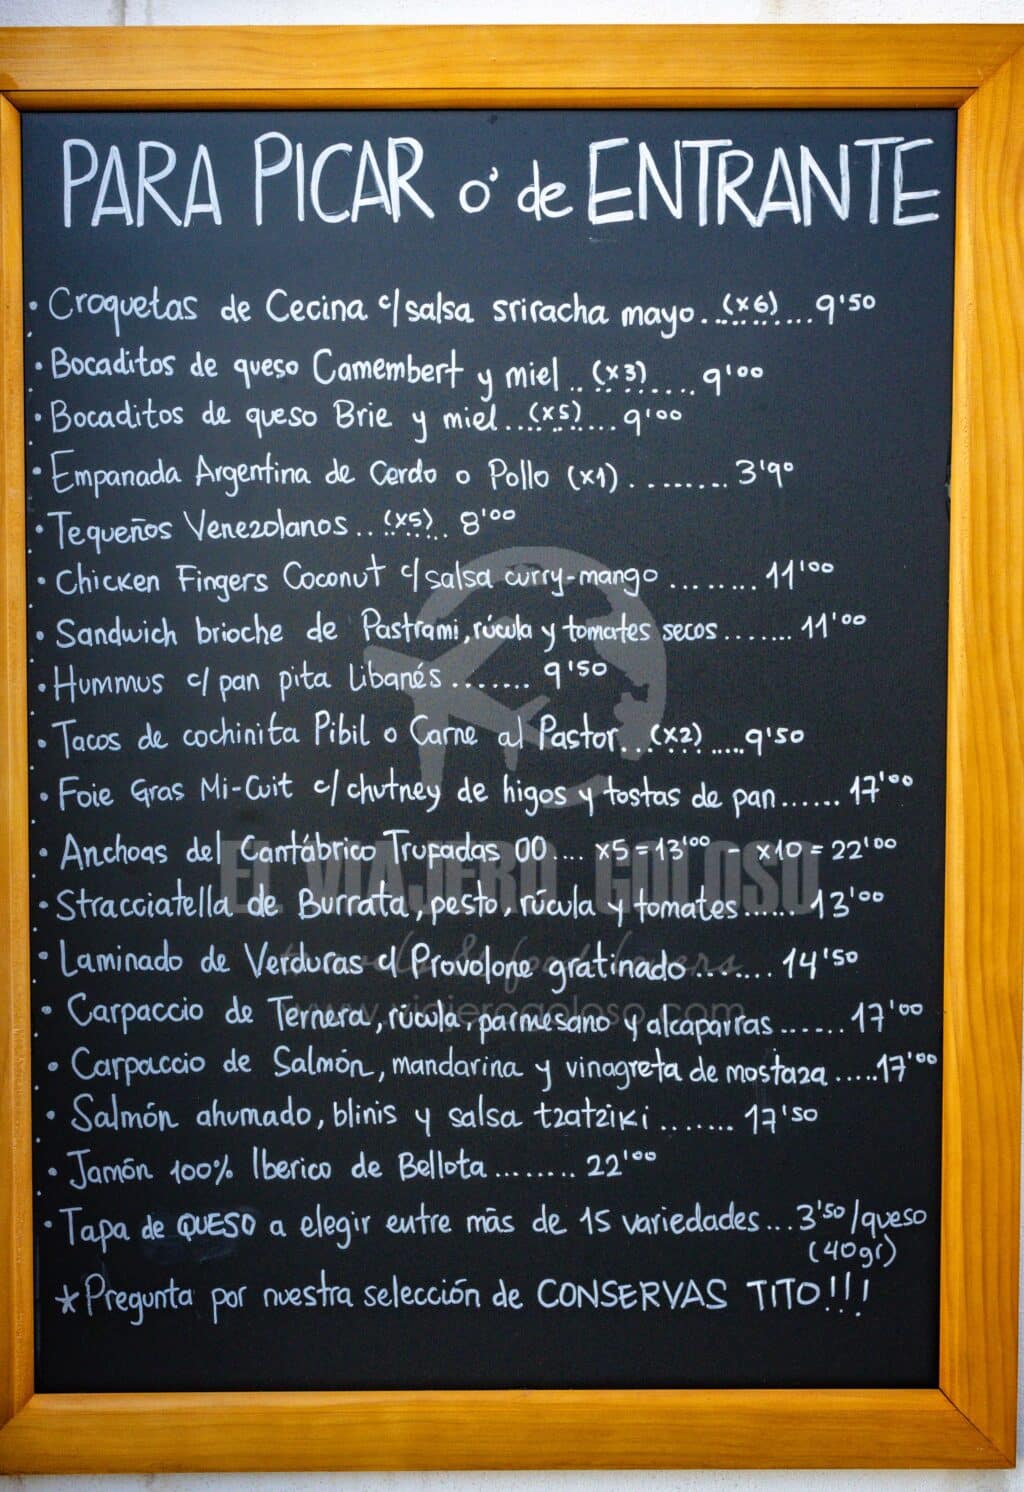 PARA PICAR o' de ENTRANTE
· Croquetas de Cecina c/salsa sriracha mayo..(x6)....9'50
· Bocaditos de queso Camembert y miel..(x3).....9'00
· Bocaditos de queso Brie y miel...(x5)....9'00
· Empanada Argentina de Cerdo o Pollo (x1)........3'90
· Tequeños Venezolanos..(x5). 8'00
· Chicken Fingers Coconut c/salsa curry-mango........11'00
· Sandwich brioche de Pastrami, rúcula y tomates secos.......11'00
· Hummus c/ pan pita Libanés....... 9'50
· Tacos de cochinita Pibil o Carne al Pastor...(x2).....9'50
· Foie Gras Mi-Cuit c/chutney de higos y tostas de pan......17'00
· Anchoas del Cantábrico Trufadas 00.... x5=13'00 - x10=22'00
· Stracciatella de Burrata, pesto, rúcula y tomates......13'00
· Laminado de Verduras c/ Provolone gratinado........14'50
· Carpaccio de Ternera, rúcula, parmesano y alcaparras......17'00
· Carpaccio de Salmón, mandarina y vinagreta de mostaza.....17'00
· Salmón ahumado, blinis y salsa tzatziki.......17'50
· Jamón 100% Iberico de Bellota........22'00
· Tapa de QUESO a elegir entre más de 15 variedades...3'50/queso
(40gr)
* Pregunta por nuestra selección de CONSERVAS TITO!!!
EL VIAJERO GOLOSO
travels & food lovers
www.viajerogoloso.com